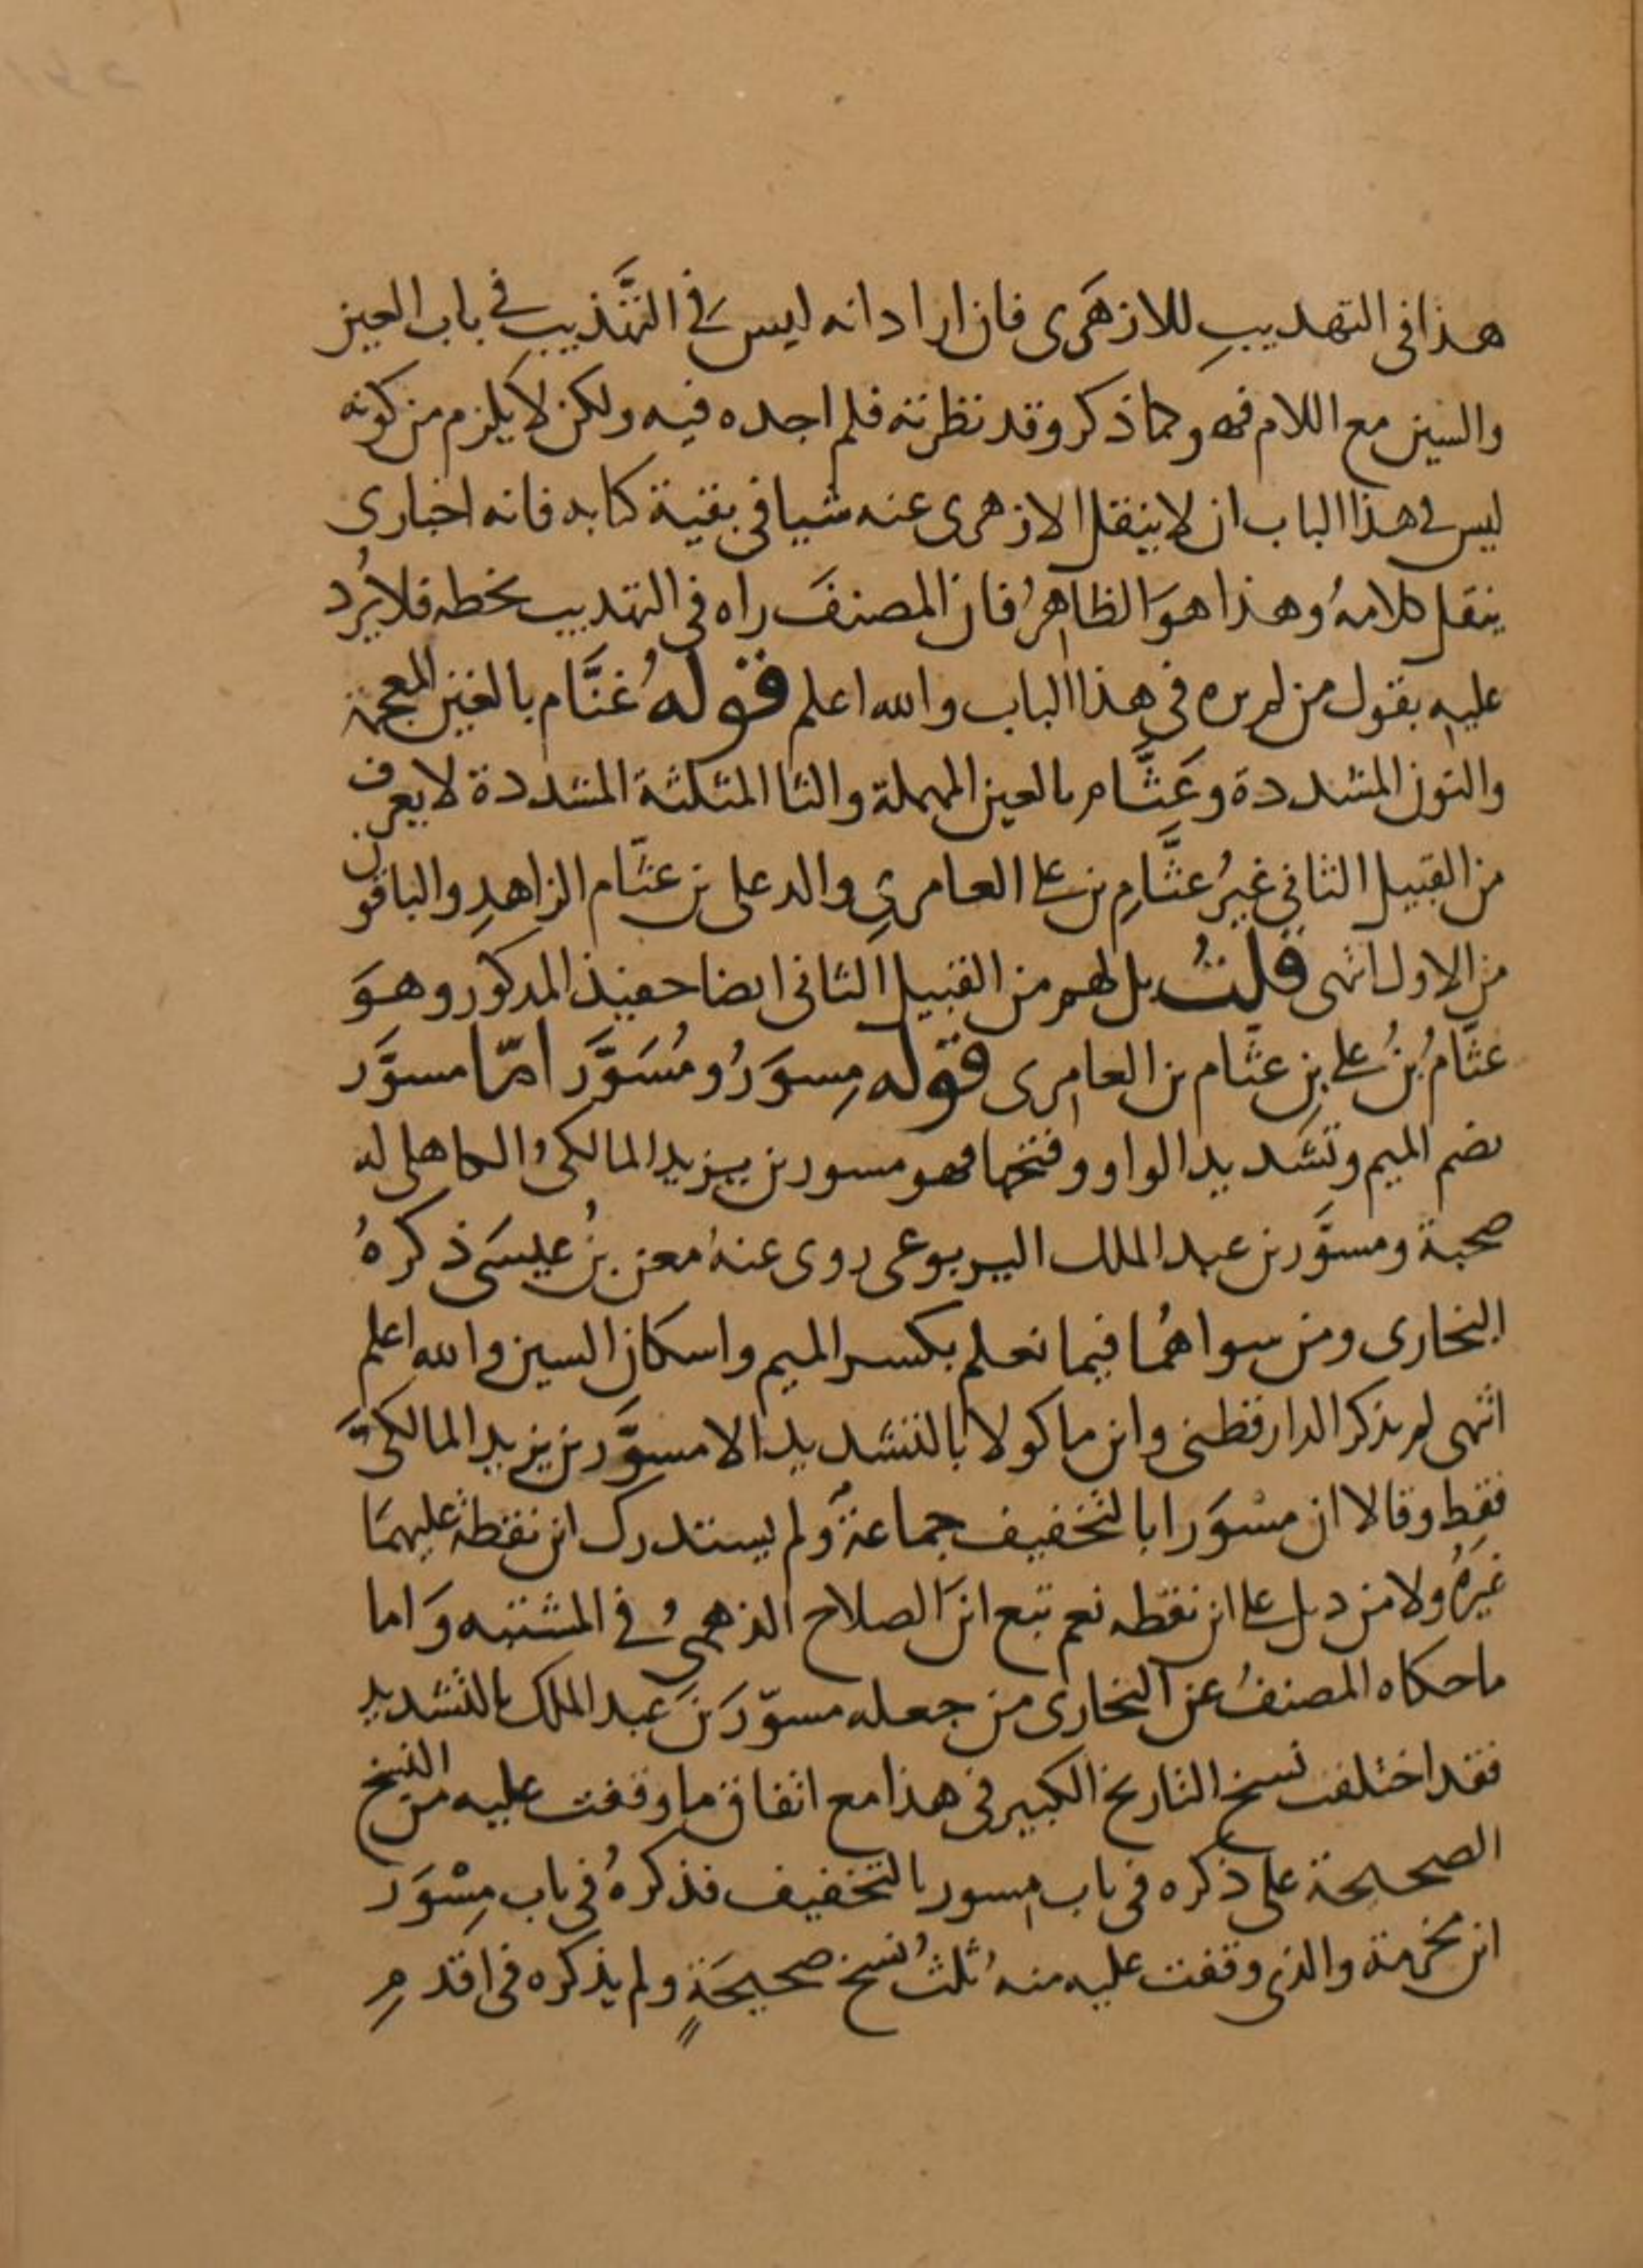 هذا فى التهديبِ للازهَرى فان اراد انه ليس فى التَّهذيب فى باب العين
والسين مع اللام فهو كما ذكر وقد نظرته فلم اجده فيه ولكن لا يلزم من كونه
ليس فى هذا الباب ان لا ينقل الازهرى عنه شيا فى بقية كتابه فانه اخبارى
ينقل كلامهُ وهذا هوَ الظاهرُ فان المصنفَ راه فى التهديب بخطه فلا يُرد
عليه بقول من لم يره فى هذا الباب والله اعلم قوله غنَّام بالغين المعجمة
والنون المشددة وعَثَّام بالعين المهملة والثا المثلثة المشددة لا يعرف
من القبيل الثانى غيرُ عثَّامِ بن على العامرىِ والد على بن عثّام الزاهدِ والباقون
من الاول انتهى قلتُ بل لهم من القبيل الثانى ايضا حفيد المذكور وهوَ
عثّامُ بنُ على بنِ عثّام بن العامرى قوله مِسوَرُ ومُسَوَّر امّا مسوَّر
بضم الميم وتشديد الواو وفتحها فهو مسور بن يزيد المالكىُ الكاهلى له
صحبة ومسوَّر بن عبد الملك اليربوعى روى عنهُ معن بنُ عيسَى ذكرهُ
البخارى ومن سواهُما فيما نعلم بكسر الميم واسكان السين والله اعلم
انتهى لم يذكر الدارقطنى وابن ماكولا بالتشديد الا مسوَّر بن يزيد المالكىَّ
فقط وقالا ان مسْوَرا بالتخفيف جماعةٌ ولم يستدرك ابن نقطة عليهمَا
غيرَهُ ولا من ذيل على ابن نقطه نعم تبع ابنَ الصلاح الذهبىُ فى المشتبه وَاما
ما حكاه المصنفُ عن البخارى من جعله مسوّرَ بنَ عبد الملك بالتشديد
فقد اختلفت نسخ التاريخ الكبير فى هذا مع اتفاق ما وقفت عليه من النسخ
الصحيحة على ذكره فى باب مسور بالتخفيف فذكرهُ فى باب مِسْوَر
ابن مخرمة والذى وقفت عليه منه ثلثُ نسخ صحيحَةٍ ولم يذكره فى اقدمِ